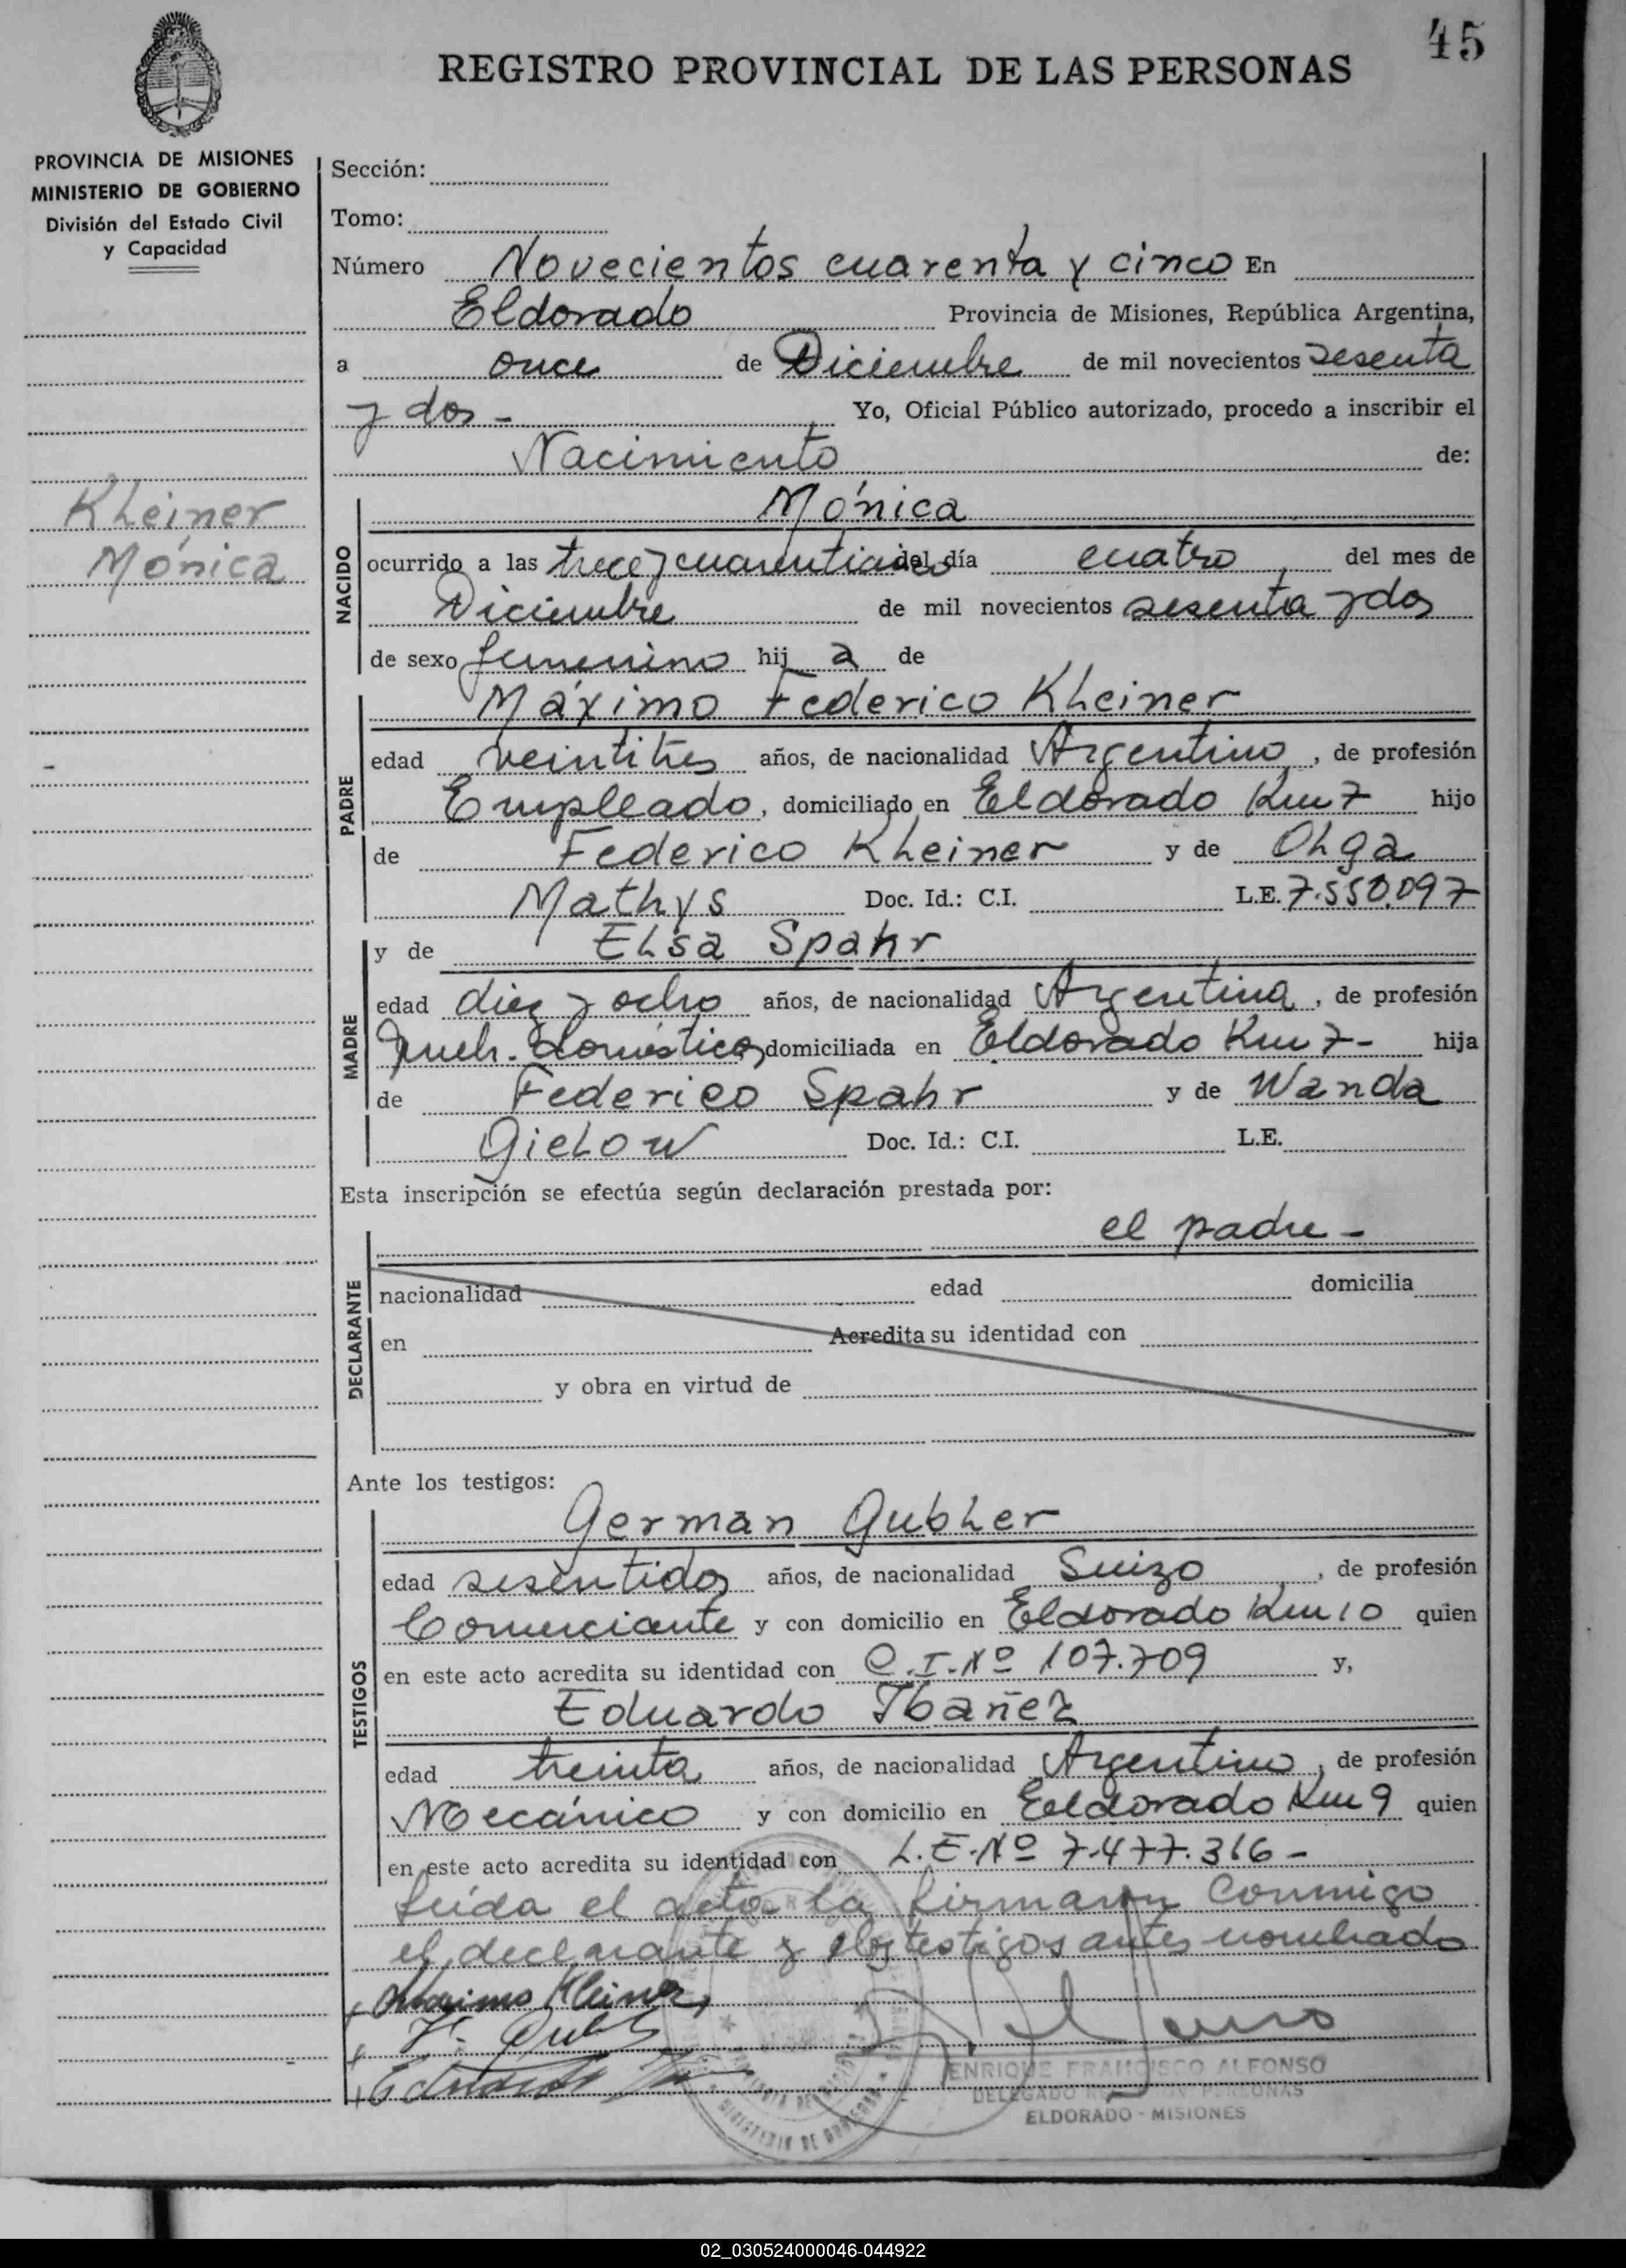 45
REGISTRO PROVINCIAL DE LAS PERSONAS
PROVINCIA DE MISIONES
MINISTERIO DE GOBIERNO
División del Estado Civil
y Capacidad
Kleiner
Mónica
Sección:
Tomo:
Número Novecientos cuarenta y cinco En
Eldorado Provincia de Misiones, República Argentina,
a once de Diciembre de mil novecientos sesenta
y dos - Yo, Oficial Público autorizado, procedo a inscribir el
Nacimiento de:
NACIDO
Mónica
ocurrido a las trece y cuarenticinco del día cuatro del mes de
Diciembre de mil novecientos sesenta y dos
de sexo femenino hij a de
PADRE
Máximo Federico Kleiner
edad veintitrés años, de nacionalidad Argentino, de profesión
Empleado, domiciliado en Eldorado Km 7 hijo
de Federico Kleiner y de Olga
Mathys Doc. Id.: C.I. L.E. 7.550.097
MADRE
y de Elsa Spahr
edad diez y ocho años, de nacionalidad Argentina, de profesión
Queh. domésticos, domiciliada en Eldorado Km 7- hija
de Federico Spahr y de Wanda
Gielow Doc. Id.: C.I. L.E.
Esta inscripción se efectúa según declaración prestada por:
el padre -
DECLARANTE
nacionalidad edad domicilia
en Acredita su identidad con
y obra en virtud de
Ante los testigos:
TESTIGOS
German Gubler
edad sesentidos años, de nacionalidad Suizo, de profesión
Comerciante y con domicilio en Eldorado Km 10 quien
en este acto acredita su identidad con C.I. Nº 107.709 y,
Eduardo Ibañez
edad treinta años, de nacionalidad Argentino, de profesión
Mecánico y con domicilio en Eldorado Km 9 quien
en este acto acredita su identidad con L.E. Nº 7.477.316 -
Leída el acta la firmaron conmigo
el declarante y los testigos antes nombrado
Maximo Kleiner
ENRIQUE FRANCISCO ALFONSO
DELEGADO PERSONAS
ELDORADO - MISIONES
02_030524000046-044922